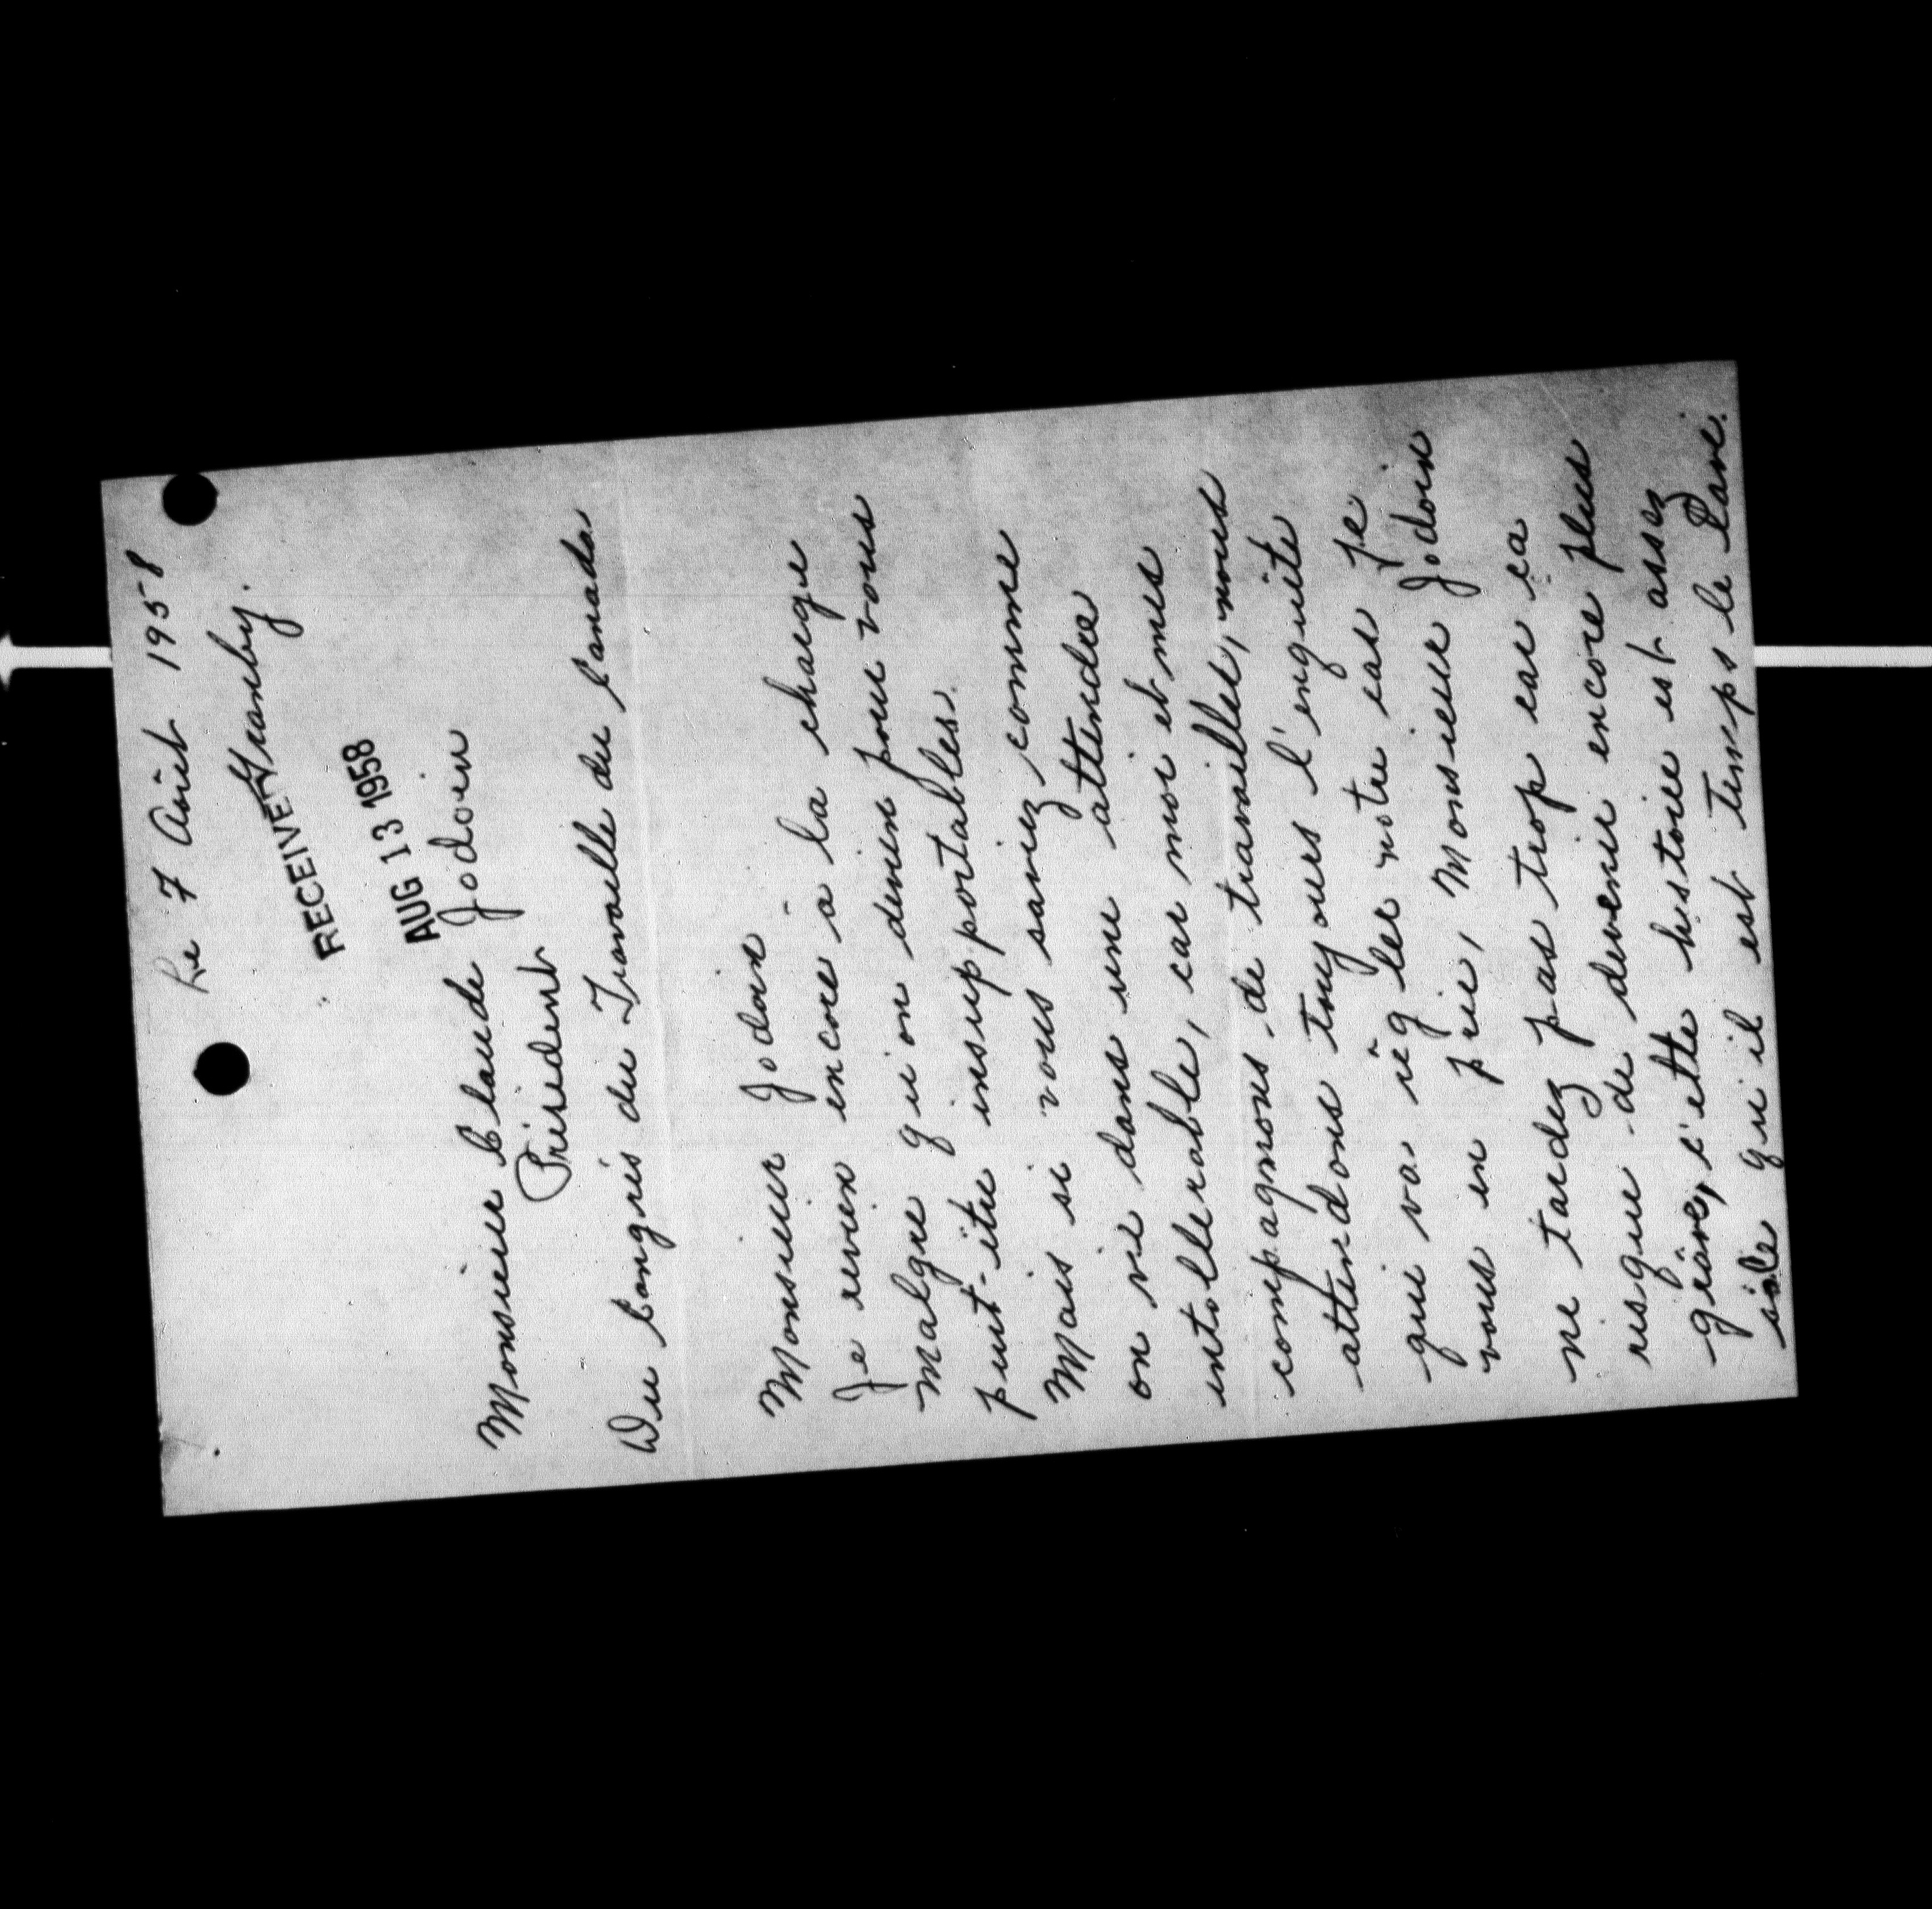 Le 7 Août 1958
Granby.
RECEIVED
AUG 13 1958
Monsieur Claude Jodoin
Président
Du Congrès du Travaille du Canada
Monsieur Jodoin
Je revien encore à la charge
malgre qu'on devien pour vous
peut-être insupportables.
Mais si vous saviez, comme
on vie dans une attendre
intollerable, car moi et mes
compagnons, de travailler, nous
attendons toujours l'enquête
qui va règler notre cas je
vous en prie, Monsieur Jodoin
ne tardez pas trop car ca
resque de devenir encore plus
grave, c'ette histoire est assez
sâle qu'il est temps le Lave.